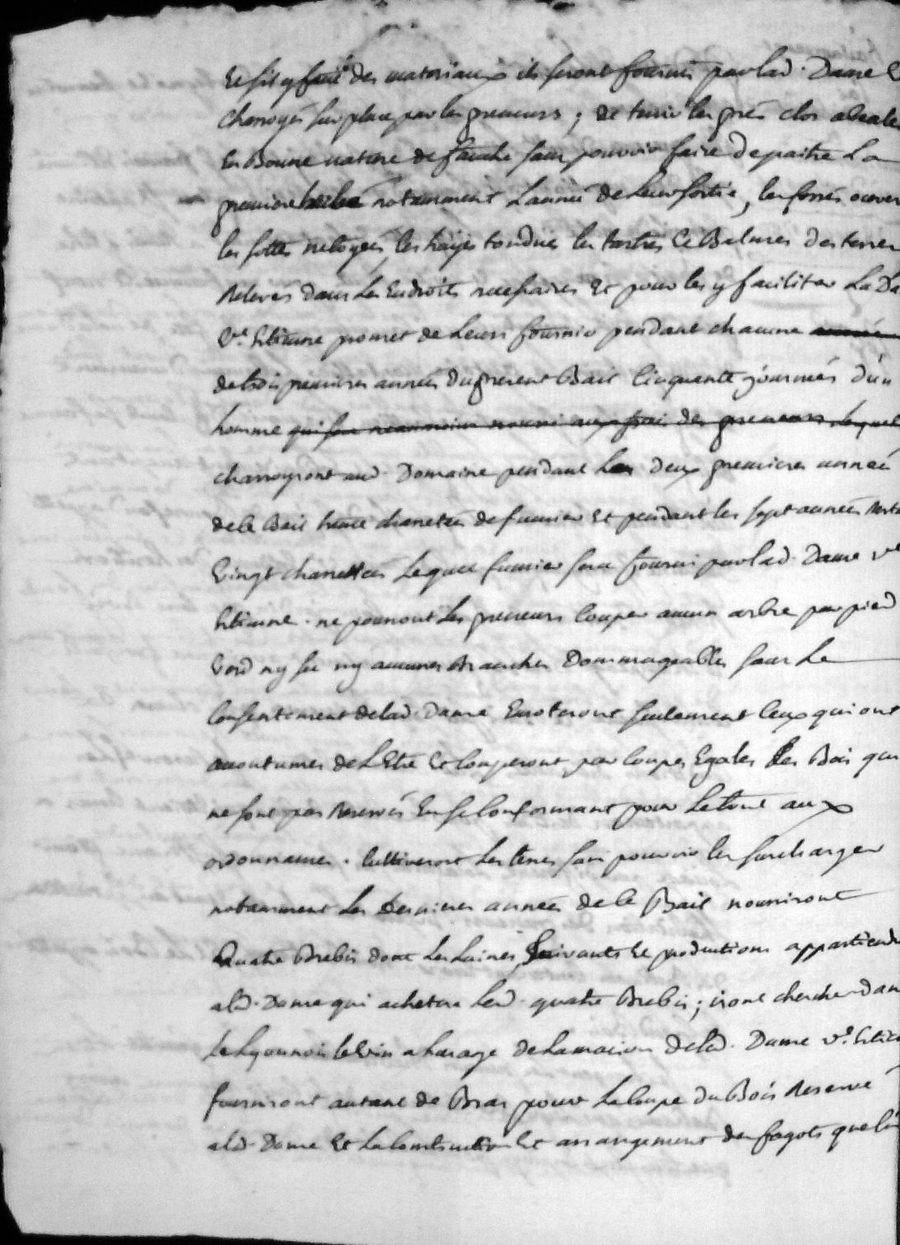 Et s'il y faut des materiaux ils seront fournis par lad. Dame &
charoyés sur place par les preneurs ; de tenir les prés clos
En Bonne nature de fauche sans pouvoir faire depaitre La
premiere herbe notamment L'année de Leur sortie, les fossés
les nettoyés, les hayes tondües les tertres et Balmes des terres
Relevés dans les Endroits necessaires Et pour les y faciliter La
Ve. promet de Leurs fournir pendant chacune année
de trois premieres années du present Bail Cinquante journées d'un
homme qui sera neanmoins nourri aux frais des preneurs lesquel
charroyront aud. Domaine pendant Les Deux premieres année
de ce Bail charetées de fumier Et pendant les sept années
Vingt charettées Lequel fumier sera fourni par lad. Dame ve
ne pouront Les preneurs Couper aucun arbre par pied
Verd ny sec ny aucunes Branches Dommageables sans Le
Consentement de lad. Dame Emoteront seulement Ceux qui ont
accoutumés de L'Etre Et Couperont par Coupes Egales Les Bois qui
ne sont pas Reservés En se Conformant pour Le tout aux
ordonnances. Cultiveront Les terres sans pouvoir les surcharger
notamment Les Dernieres années de ce Bail nourriront
Quatre Brebis dont Les Laines, suivants Et productions
a lad. Dame qui achetera lesd. quatre Brebis ; iront chercher dan
Le Lyonnois le Vin a L'usage de La maison de lad. Dame ve.
fourniront autant de Bras pour La Coupe du Bois Reservé
a lad. Dame Et La Construction Et arrangement des fagots